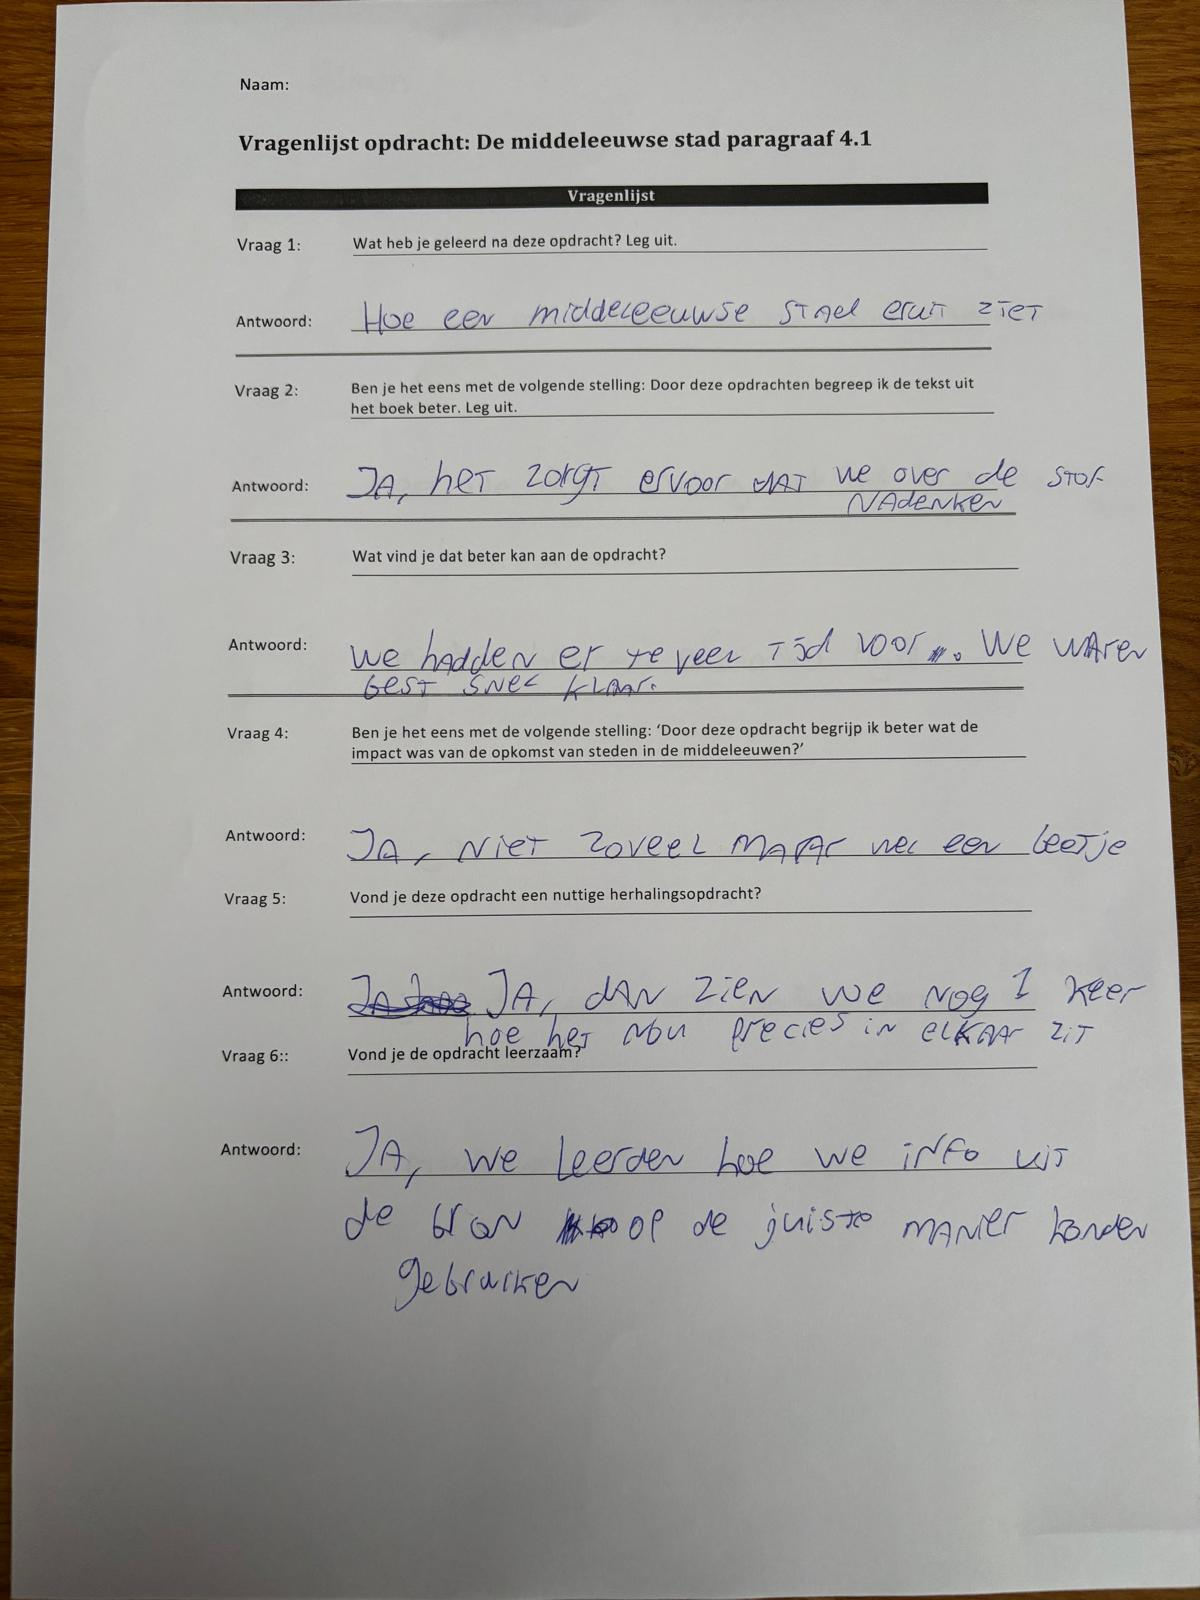 Naam:
Vragenlijst opdracht: De middeleeuwse stad paragraaf 4.1
Vragenlijst
Vraag 1: Wat heb je geleerd na deze opdracht? Leg uit.
Antwoord: Hoe een middeleeuwse stad eruit ziet
Vraag 2: Ben je het eens met de volgende stelling: Door deze opdrachten begreep ik de tekst uit
het boek beter. Leg uit.
Antwoord: JA, het zorgt ervoor dat we over de stof
nadenken
Vraag 3: Wat vind je dat beter kan aan de opdracht?
Antwoord: we hadden er te veel tijd voor. We waren
best snel klaar.
Vraag 4: Ben je het eens met de volgende stelling: ‘Door deze opdracht begrijp ik beter wat de
impact was van de opkomst van steden in de middeleeuwen?’
Antwoord: JA, niet zoveel maar wel een beetje
Vraag 5: Vond je deze opdracht een nuttige herhalingsopdracht?
Antwoord: JA, dan zien we nog 1 keer
hoe het nou precies in elkaar zit
Vraag 6:: Vond je de opdracht leerzaam?
Antwoord: JA, we leerden hoe we info uit
de bron op de juiste manier konden
gebruiken